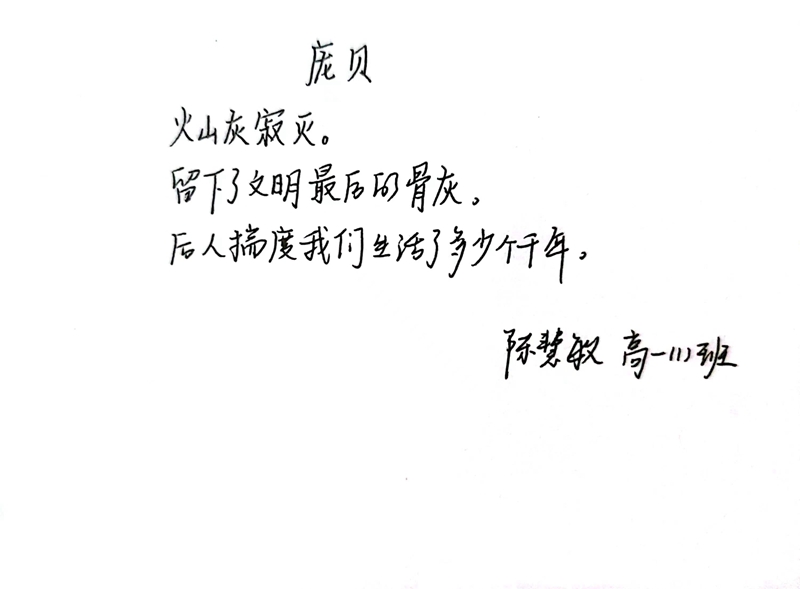 庞贝
火山灰寂灭。
留下了文明最后的骨灰。
后人揣度我们生活了多少个千年。
陈慧敏 高一(1)班